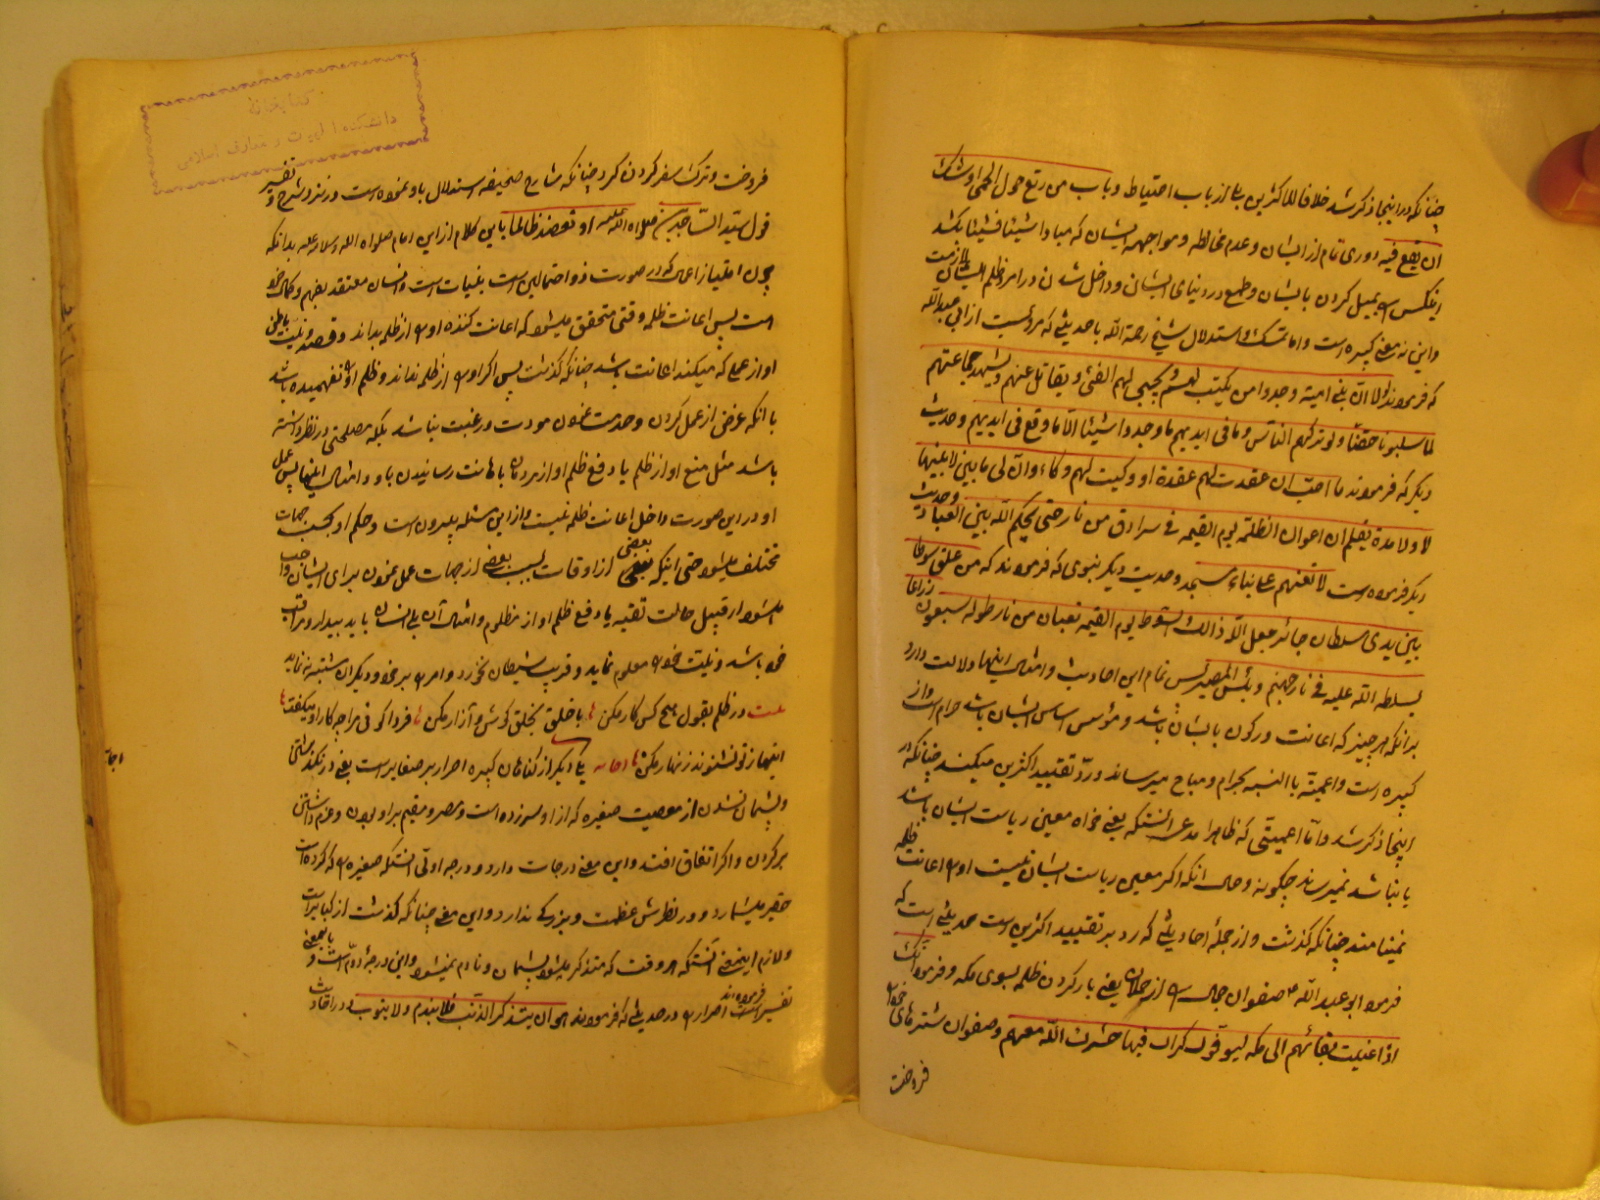 چنانکه در اینجا ذکر شد خلافا للاکثرین بلی از باب احتیاط و باب من رتع حول الحمی اوشک
ان یقع فیه دوری تام از ایشان و عدم مخالطه و مواجهه ایشان که مبادا شیئا فشیئا بکشد
اینکس را بمیل کردن بایشان و طمع در دنیای ایشان و داخل شدن در امر ظلم ایشان
و این نه معنی کبیره است و اما تمسک و استدلال شیخ رحمة الله باحدیثی که مرویست از ابی عبدالله
که فرمودند لولا ان بنی امیة وجدوا من یکتب لهم و یجبی لهم الفیء و یقاتل عنهم و یشهد جماعتهم
لما سلبونا حقنا و لو ترکهم الناس و ما فی ایدیهم ما وجدوا شیئا الا ما وقع فی ایدیهم و حدیث
دیگر که فرمودند ما احب ان عقدت لهم عقدة او وکیت لهم وکاء و ان لی ما بین لابتیها
لا و لا مدة بقلم ان اعوان الظلمه یوم القیمه فی سرادق من نار حتی یحکم الله بین العباد و حدیث
دیگر فرموده است لا تعنهم علی بناء مسجد و حدیث دیگر نبوی که فرمودند که من علق سوطا
بین یدی سلطان جائر جعل الله ذالک السوط یوم القیمه ثعبان من نار طوله سبعون ذراعا
یسلطه الله علیه فی نار جهنم و بئس المصیر پس تمام این احادیث و امثال اینها دلالت دارد
برانکه هر چیز که اعانت و رکون بایشان باشد و مؤسس اساس ایشان باشد حرام است و از
کبیره است و اعمیته بالنسبه بحرام و مباح میرساند و رد تقیید اکثرین میکنند چنانکه در
اینجا ذکر شد و اما اعمیتی که ظاهرا مدعی انستکه یعنی خواه معین ریاست ایشان باشد
یا نباشد نمیرساند چگونه و حال انکه اگر معین ریاست ایشان نیست او را اعانت ظلمه
نمینامند چنانکه گذشت و از جملهٔ احادیثی که رد بر تقیید اکثرین است حدیثی است که
فرمود ابو عبد الله صفوان جمال را از حملان یعنی بار کردن ظلمه بسوی مکه و فرمود انک
اذا بقائهم الی مکه کراک فیها حشرت الله معهم و صفوان شترهای خود را
فروخت
فروخت و ترک سفر کردن کرد چنانکه شارح صحیفه استدلال باو نموده است در شرح و تفسیر
قول سید الساجدین صلواة الله علیه او تعضد ظالما باین کلام از این امام صلواة الله و سلامه علیه بدانکه
چون امتیاز اعمال که در صورت ذو احتمالین است بنیات است و انسان معتقد بفهم و کمال خود
است پس اعانت ظلمه وقتی متحقق میشود که اعانت کننده او را از ظلمه بداند و قصد و نیت باطنی
او از عملی که میکند اعانت باشد چنانکه گذشت پس اگر او را از ظلمه نداند و ظلم او را نفهمیده باشد
با انکه غرض از عمل کردن و خدمت نمودن مودت و رغبت نباشد بلکه مصلحتی در نظر داشته
باشد مثل منع او از ظلم یا دفع ظلم او از مردمان باهانت رسانیدن باو و امثال اینها پس عمل
او در این صورت داخل اعانت ظلمه نیست و از این مسئله بیرون است و حکم او بحسب جهات
مختلف میشود حتی اینکه بعضی از اوقات بسبب بعضی از جهات عمل نمودن برای ایشان واجب
میشود از قبیل حالت تقیه یا دفع ظلم او از مظلوم و امثال آن بلی انسان باید بیدار و مراقب
خود باشد و نیت خود را معلوم نماید و فریب شیطان نخورد و امر را بر خود و دیگران مشتبه ننماید
در ظلم بقول هیچ کس کار مکن با خلق بخلق کوش و آزار مکن فردا گوئی مرا چه کار او میگفت
اینها ز تو نشنوند زنهار مکن یا دیگر از گناهان کبیره اصرار بر صغایر است یعنی درنگذشتن
و پشیمان نشدن از معصیت صغیره که از او سر زده است و مصر و مقیم بر او بودن و عزم داشتن
بر کردن و اگر اتفاق افتد و این معنی درجات دارد و درجه اولی انستکه صغیره را که کرده است
حقیر میشمارد و در نظرش عظمت و بزرگی ندارد و این معنی چنانکه گذشت از کبایر است
و لازم اینمعنی آنستکه هر وقت که متذکر میشود پشیمان و نادم نمیشود و این درجهٔ دوم است و باینمعنی
تفسیر فرموده‌اند اصرار را در حدیثی که فرمودند هو ان یتذکر الذنب فلا یندم و لا یتوب در احادیث
کتابخانه
دانشکده الهیات و معارف اسلامی